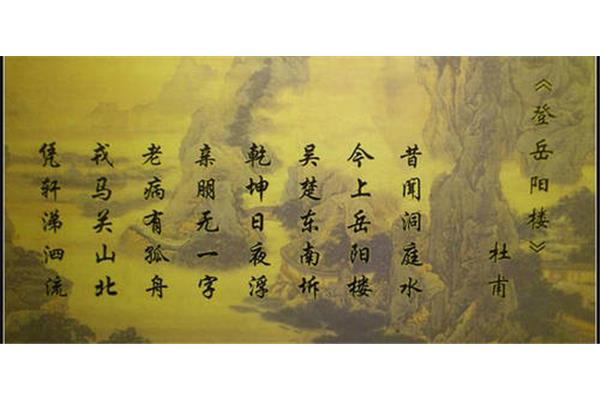 《登岳阳楼》
杜甫
昔闻洞庭水
今上岳阳楼
吴楚东南坼
乾坤日夜浮
亲朋无一字
老病有孤舟
戎马关山北
凭轩涕泗流